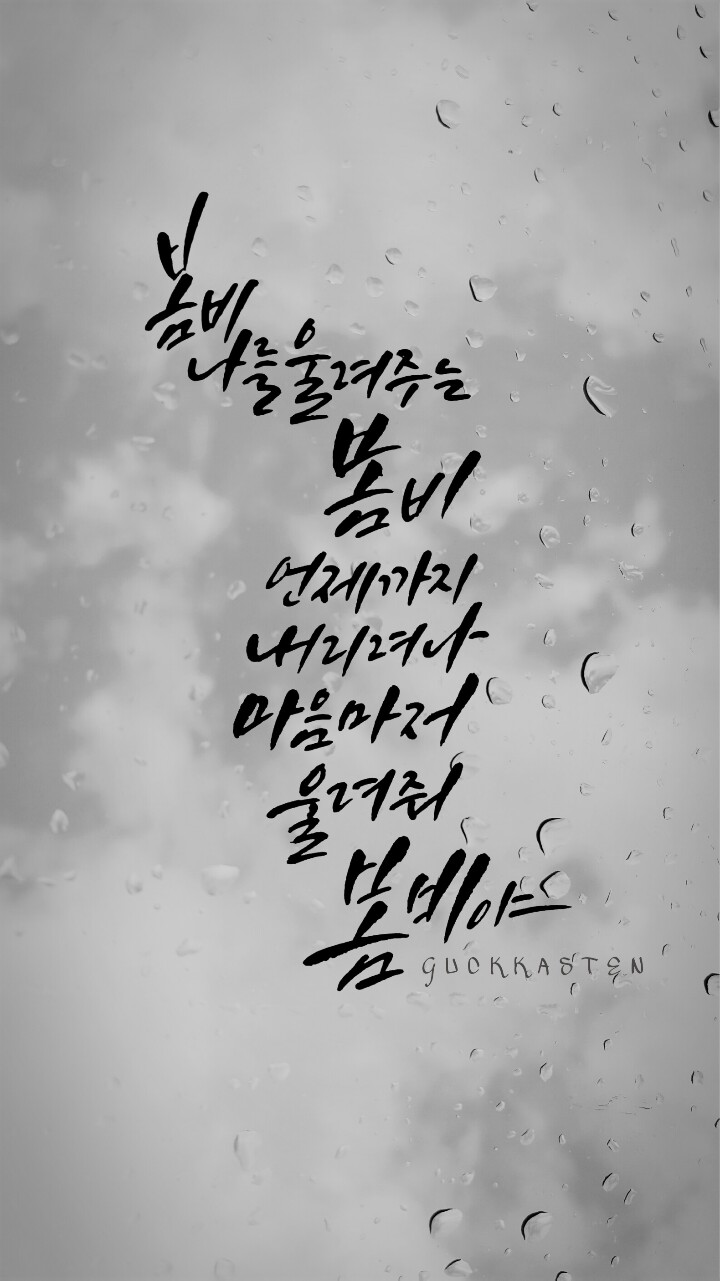 봄비
나를울려주는
봄비
언제까지
내리려나
마음마저
울려줘
봄비야
GUCKKASTEN